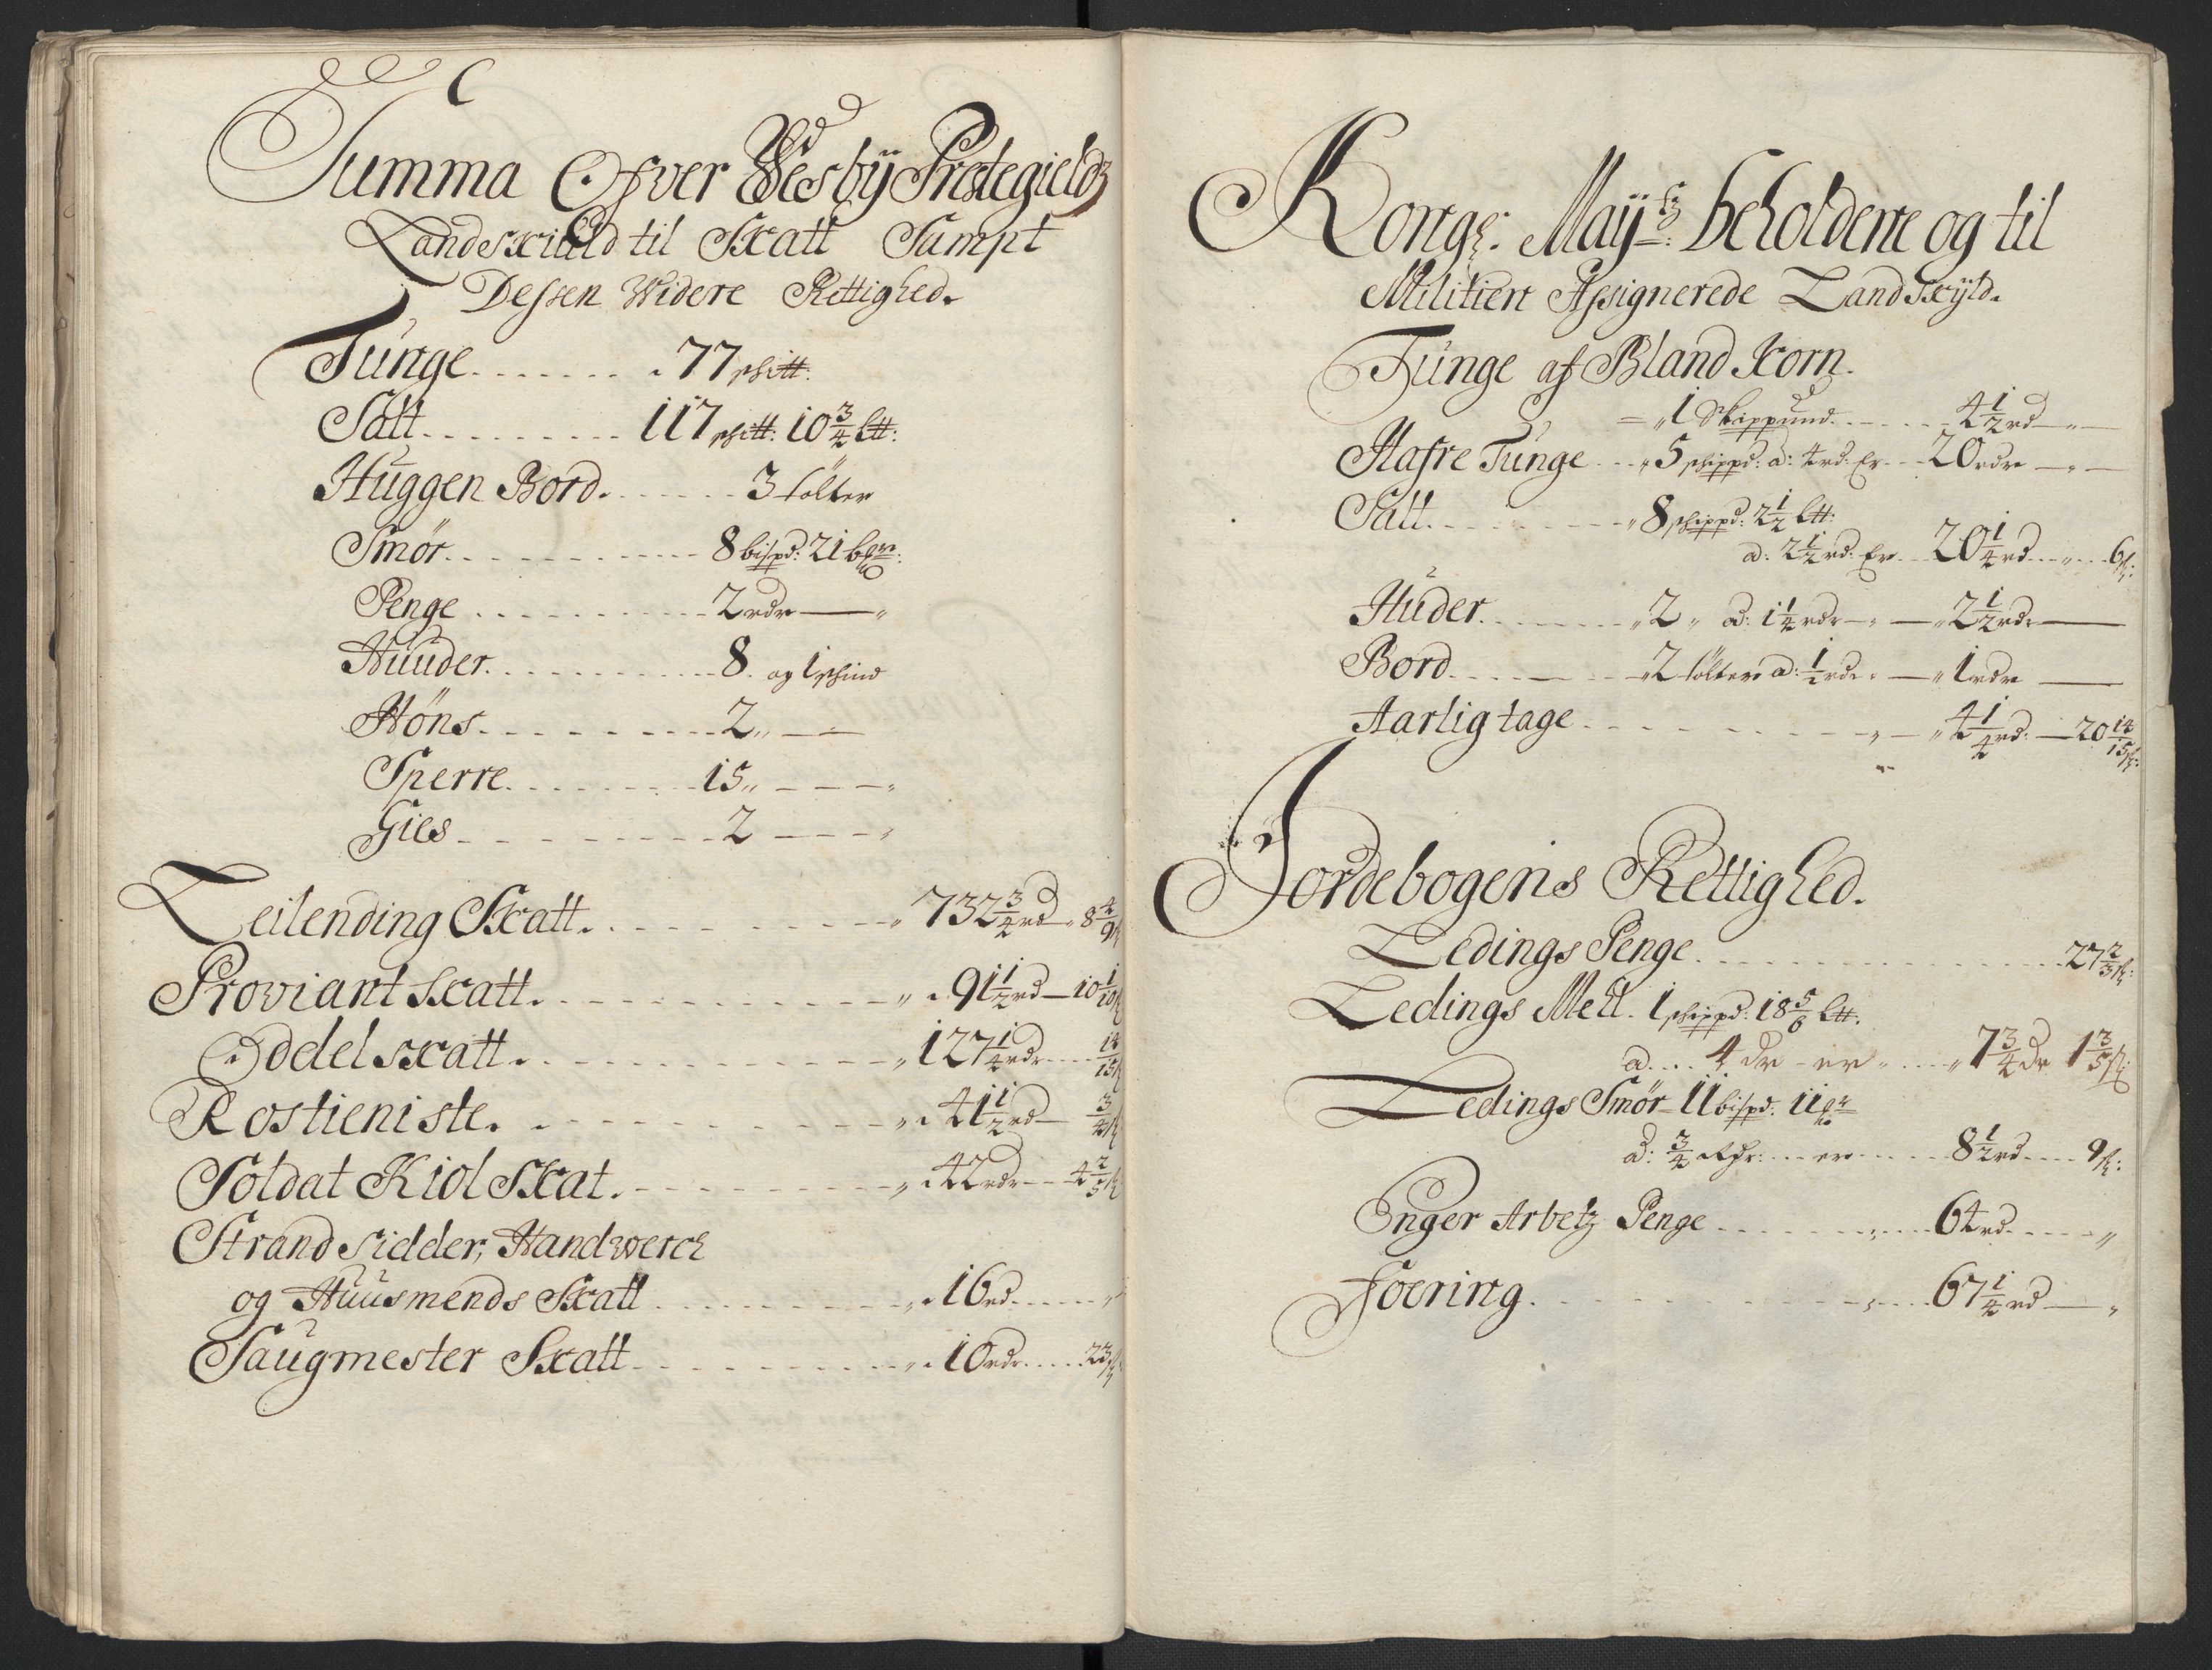 Summa Ofver Wesby Prestegields
Landskiuld til Skatt Sampt
Dessen Widere Rettighed.
Tunge . . . . . . . 77 skitt:
Salt . . . . . . . . . 117 skitt: 10 3/4 Ltt:
Huggen Bord . . . . . . 3 tolter
Smør . . . . . . . . . . . . 8 bispd: 21 bgm:
Penge . . . . . . . . . . . . 2 rdr — "
Huuder . . . . . . . . . . . 8 . og 1 skind
Høns . . . . . . . . . . . 2 " —
Sperre . . . . . . . . . 15 " — — — "
Gies . . . . . . . . . . . 2 — — — "
Leilending Skatt . . . . . . . . . . " 732 3/4 rd " 8 4/9 s
Proviant Skatt . . . . . . . . . . . . " 91 1/2 rd — 10 1/10 s
Oddel skatt . . . . . . . . . . . . " 127 1/4 rdr . . . 14/15 s
Rostieniste . . . . . . . . . . . . " 41 1/2 rd — 3/4 s
Soldat Kiol Skat . . . . . . . . . . " 42 rdr — 4 2/5 s
Strand sidder, Handwerck
og Huusmends Skatt . . . . . . . . . " 16 rd . . . . . "
Saugmester Skatt . . . . . . . . . . " 10 rdr . . . . 23 s
Kongl: Mayts: beholdene og til
Militien Assignerede Landskyld.
Tunge af Bland Korn.
= " 1 Skippund . . . . . . . 4 1/2 rd — " —
Hafre Tunge . . . " 5 skippd: a: 4 rd. er . . 20 rdr — " —
Salt . . . . . . . . . " 8 skippd: 2 1/2 Ltt:
a: 2 1/2 rd. er . . 20 1/4 rd . . . " . . . 6 s:
Huder . . . . . . . . " 2 " a: 1 1/4 rdr — " — " 2 1/2 rdr —
Bord . . . . — . . . 2 tolter a: 1/2 rdr " — " 1 rdr —
Aarlig tage . . . . . . . . . . . " — " 4 1/4 rd: — 20 14/15 s:
Jordebogens Rettighed.
Ledings Penge . . . . . . . . . . . . . . 27 2/3 s:
Ledings Mell . 1 skippd: 18 5/6 Ltt:
a . . . . 4 dr - er " . . . . " 7 3/4 dr 1 3/5 s:
Ledings Smør 11 bispd: 11
a: 3/4 . . . . er . . . . . 8 1/2 rd . . . . 9 s:
Enger Arbetz Penge . . . . . . . " . . . . 64 rd . . . . . "
Foering . . . . . . . . . . . . " . . . . 67 1/4 rd — "